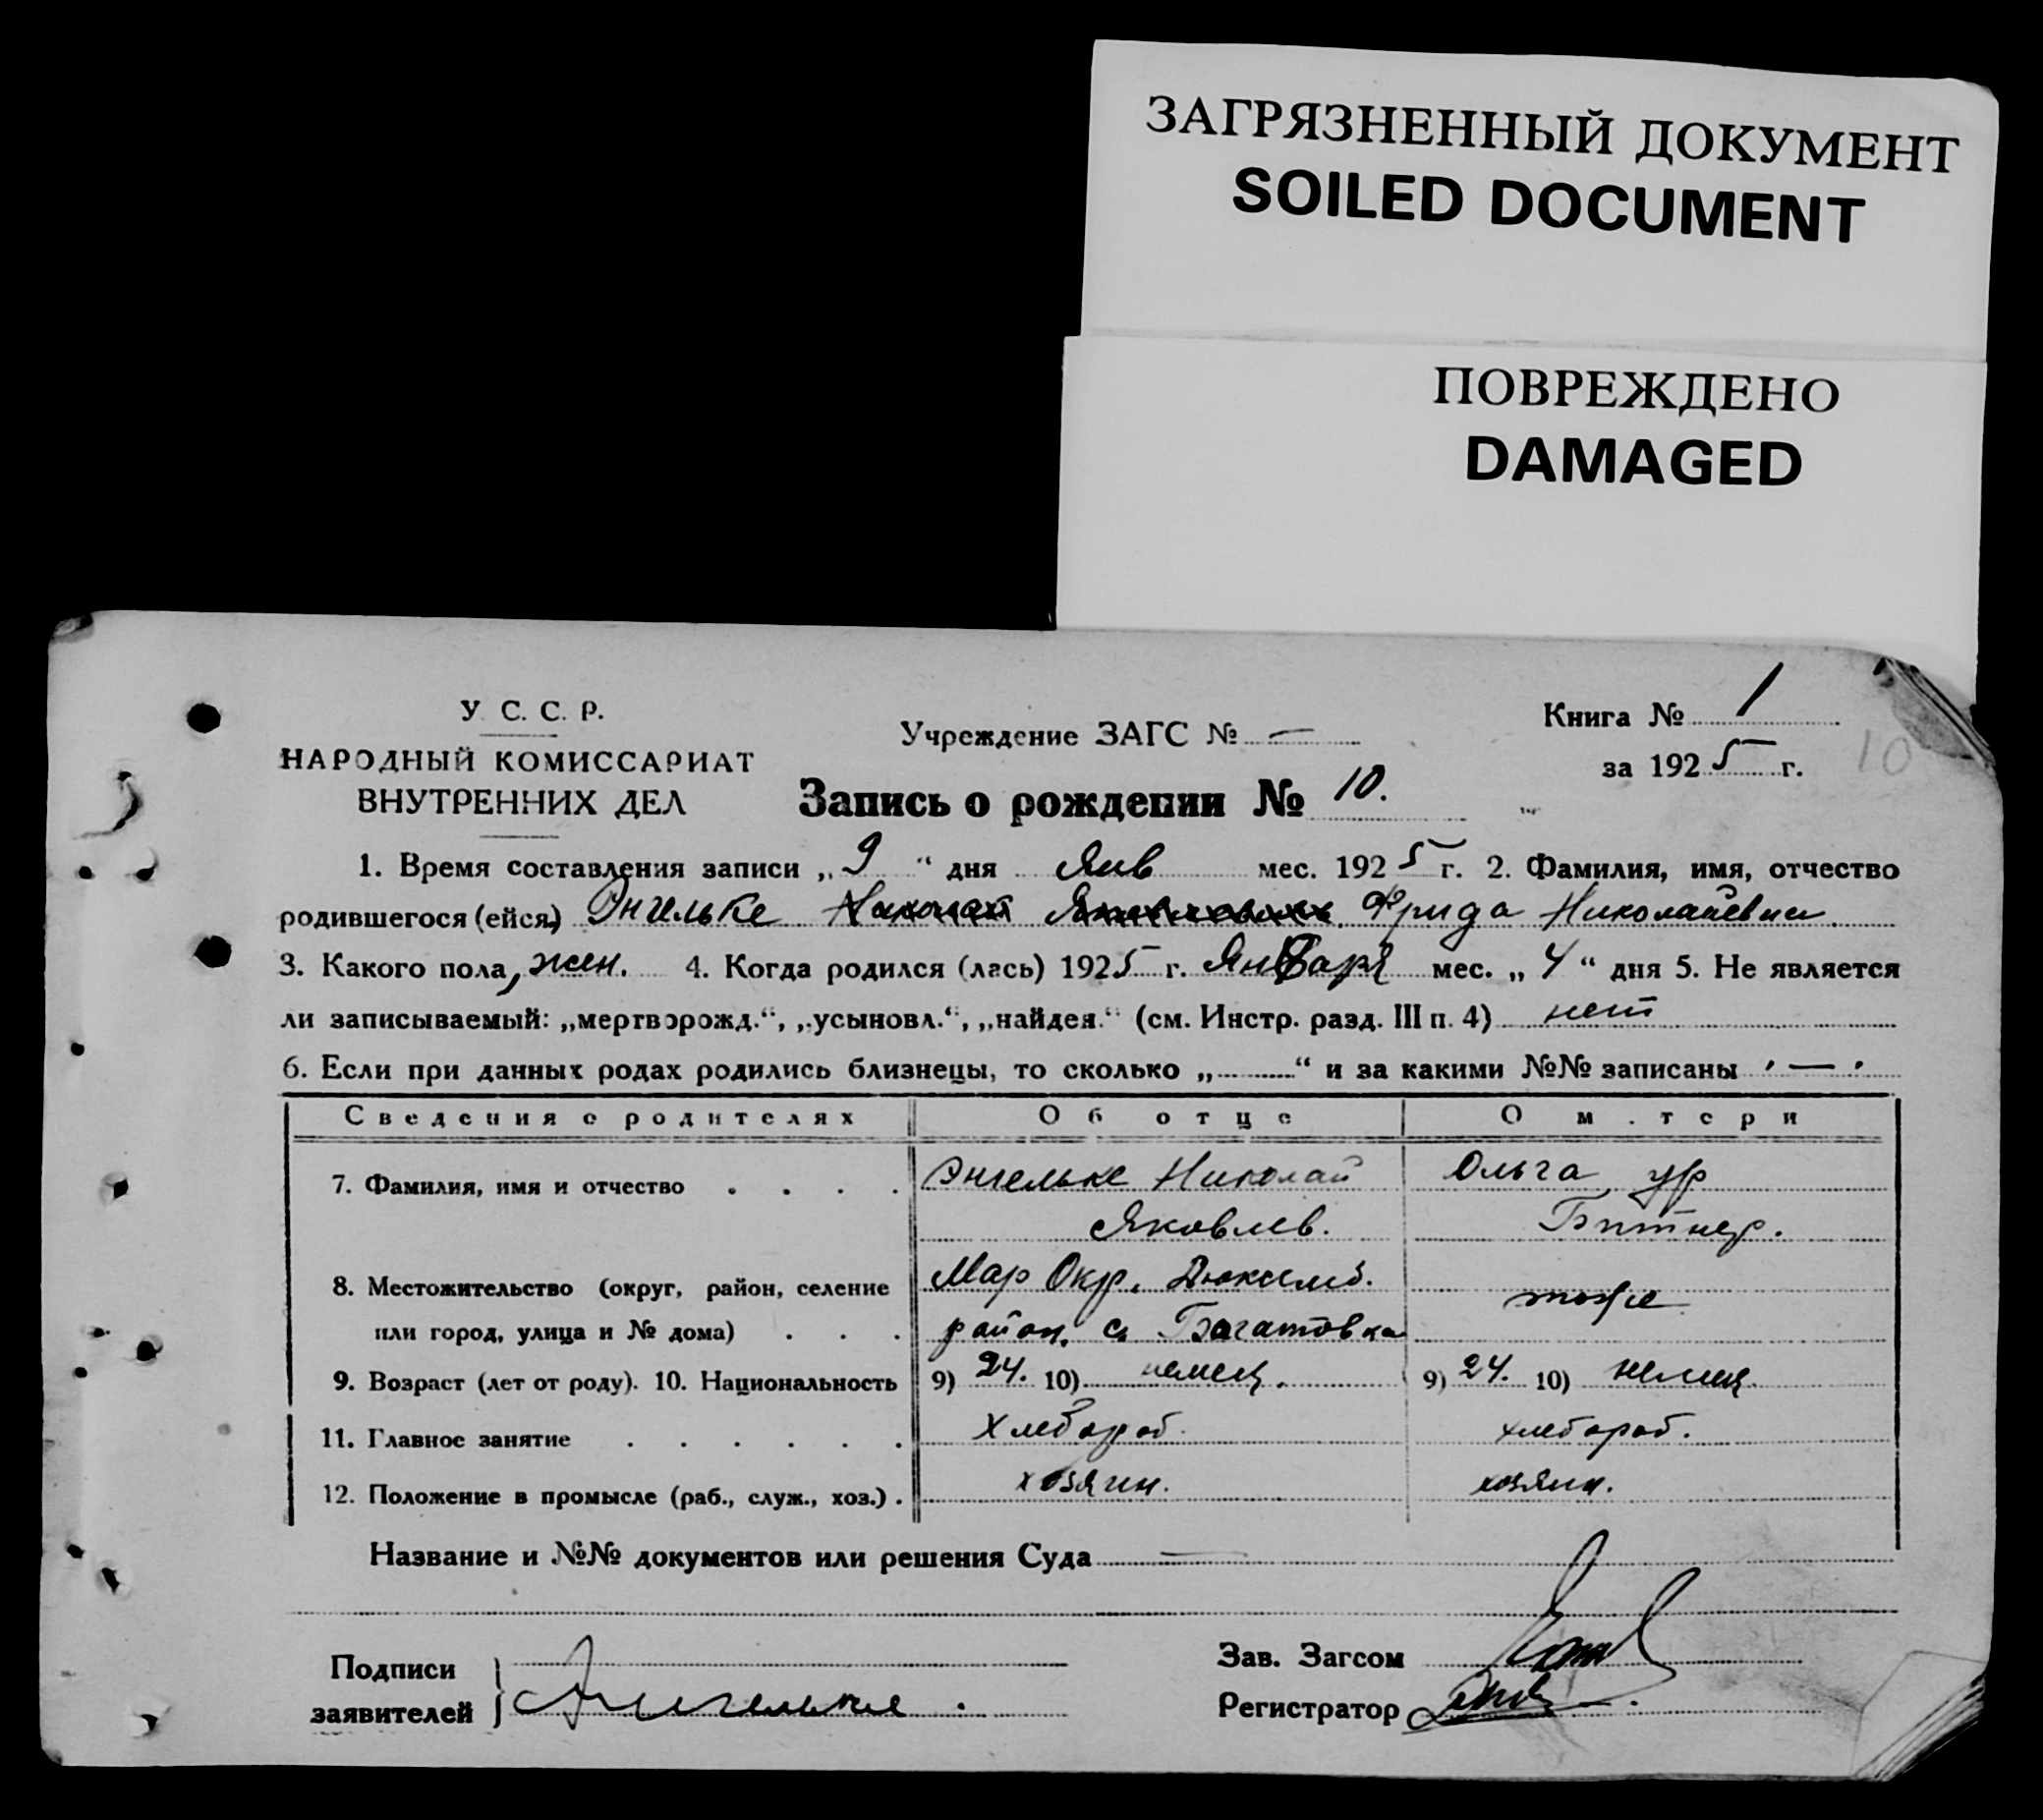 ЗАГРЯЗНЕННЫЙ ДОКУМЕНТ
SOILED DOCUMENT
ПОВРЕЖДЕНО
DAMAGED
У. С. С. Р.
НАРОДНЫЙ КОМИССАРИАТ
ВНУТРЕННИХ ДЕЛ
Учреждение ЗАГС № —
Книга № 1
за 1925 г.
10
Запись о рождении № 10.
1. Время составления записи „9“ дня Янв мес. 1925 г. 2. Фамилия, имя, отчество
родившегося (ейся) Энгельке Николай Фрида Николаевна
3. Какого пола, жен. 4. Когда родился (лась) 1925 г. Января мес. „4“ дня 5. Не является
ли записываемый: „мертворожд.“, „усыновл.“, „найден.“ (см. Инстр. разд. III п. 4) нет
6. Если при данных родах родились близнецы, то сколько „..........“ и за какими №№ записаны —
Сведения о родителях Об отце О м.тери
7. Фамилия, имя и отчество . . . . Энгельке Николай Ольга ур
Яковлев. Битнер.
8. Местожительство (округ, район, селение Мар Окр. Люксемб.
или город, улица и № дома) . . . район, с. Багатовка тоже
9. Возраст (лет от роду). 10. Национальность 9) 24. 10) немец. 9) 24. 10) немец.
11. Главное занятие . . . . . . Хлебороб. хлебороб.
12. Положение в промысле (раб., служ., хоз.) . хозяин. хозяин.
Название и №№ документов или решения Суда —
Подписи
заявителей } Ангельке.
Зав. Загсом
Регистратор